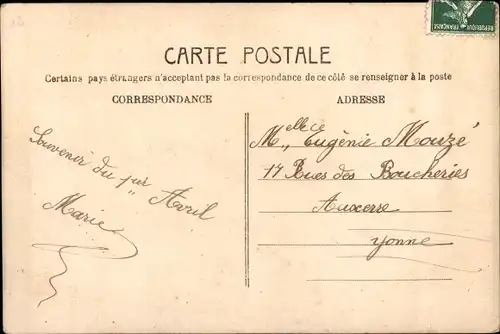 CARTE POSTALE
Certains pays étrangers n'acceptant pas la correspondance de ce côté se renseigner à la poste
CORRESPONDANCE
ADRESSE
Souvenir du 1er Avril
Marie
Melle Eugénie Mouzé
17 Rues des Boucheries
Auxerre
Yonne